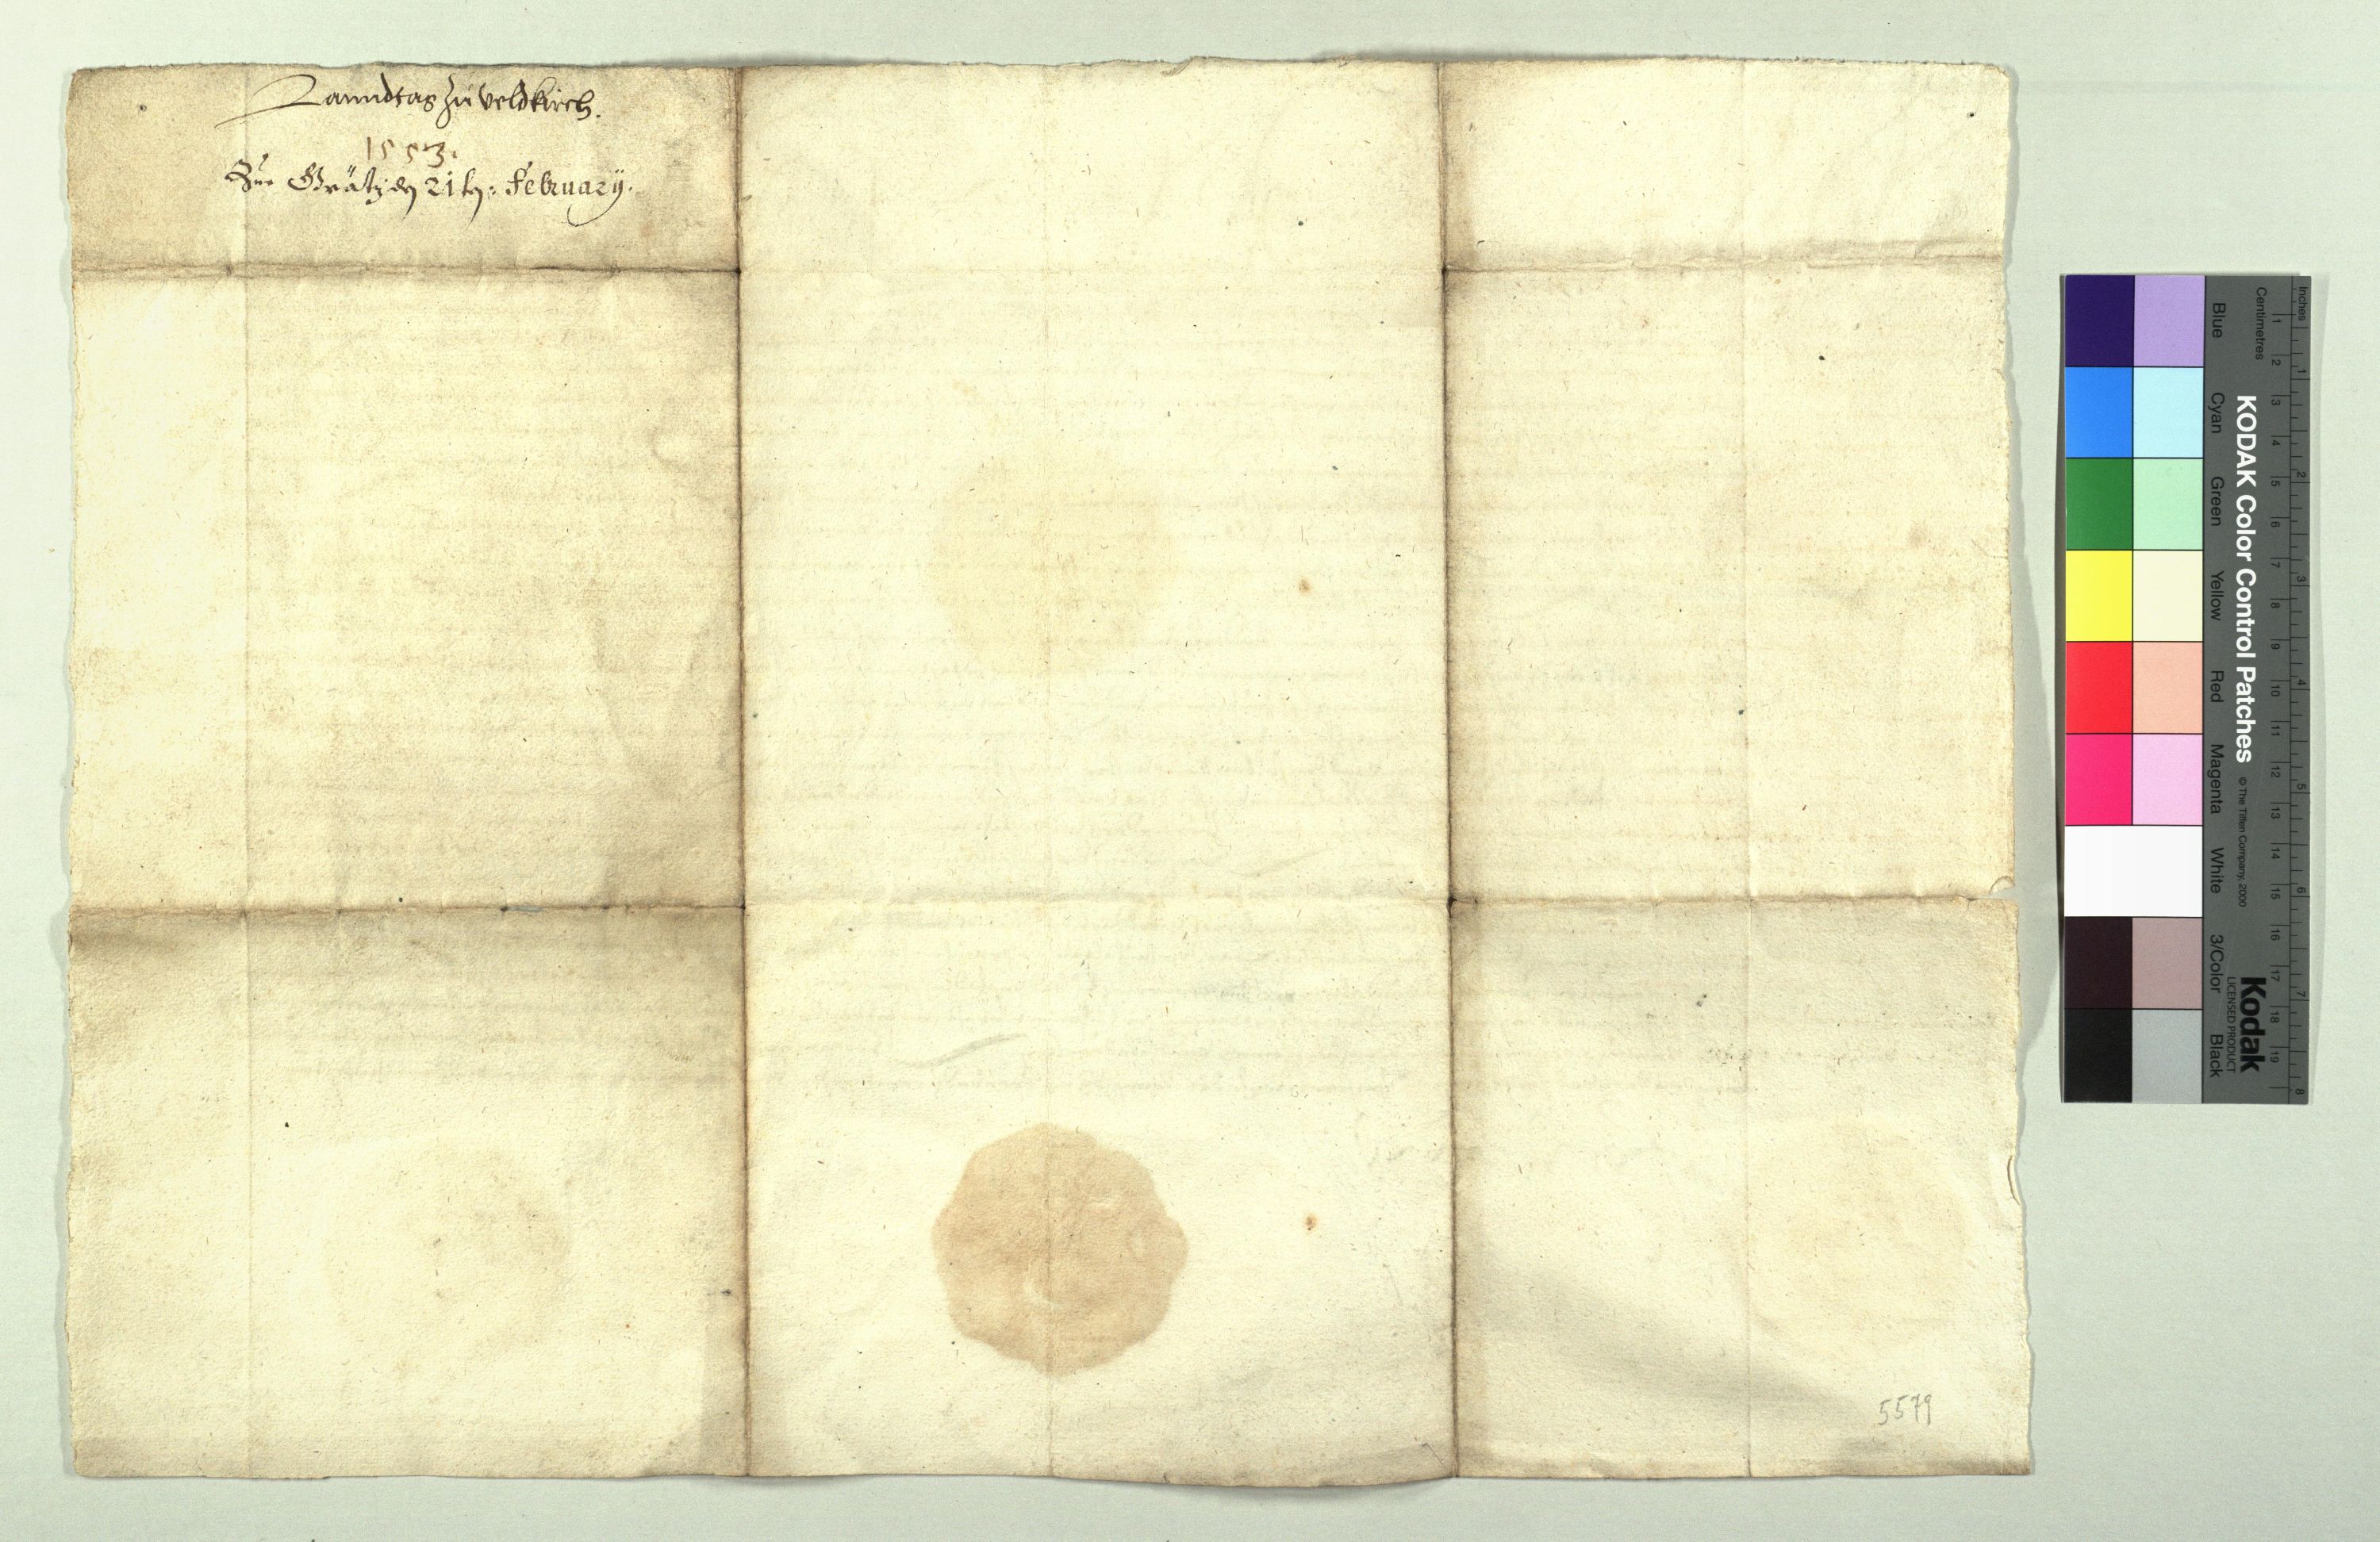 Lanndtag zu Veldkirch.
1553.
Zue Grätz den 21ten: February.
5579
Inches
Centimetres
1 2 3 4 5 6 7 8
1 2 3 4 5 6 7 8 9 10 11 12 13 14 15 16 17 18 19
KODAK Color Control Patches © The Tiffen Company, 2000
Kodak
LICENSED PRODUCT
Blue Cyan Green Yellow Red Magenta White 3/Color Black